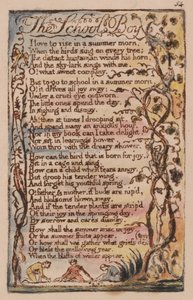 The School Boy
I love to rise in a summer morn,
When the birds sing on every tree;
The distant huntsman winds his horn,
And the sky-lark sings with me.
O! what sweet company.
But to go to school in a summer morn,
O! it drives all joy away;
Under a cruel eye outworn,
The little ones spend the day,
In sighing and dismay.
Ah! then at times I drooping sit,
And spend many an anxious hour,
Nor in my book can I take delight,
Nor sit in learnings bower,
Worn thro' with the dreary shower.
How can the bird that is born for joy,
Sit in a cage and sing.
How can a child when fears annoy,
But droop his tender wing,
And forget his youthful spring.
O! father & mother, if buds are nip'd,
And blossoms blown away,
And if the tender plants are strip'd
Of their joy in the springing day,
By sorrow and cares dismay,
How shall the summer arise in joy
Or the summer fruits appear
Or how shall we gather what griefs destroy
Or bless the mellowing year,
When the blasts of winter appear.